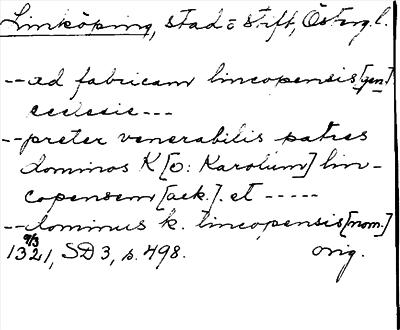 Linköping, stad o stift, Östergl.
-- ad fabricam lincopensis [gen.]
ecclesie ---
-- preter venerabilis patres
dominos K [ɔ: Karolum] lin-
copensem [ack.]. et -----
-- dominus k. lincopensis [nom.]
9/3
1321, SD 3, s. 498. orig.